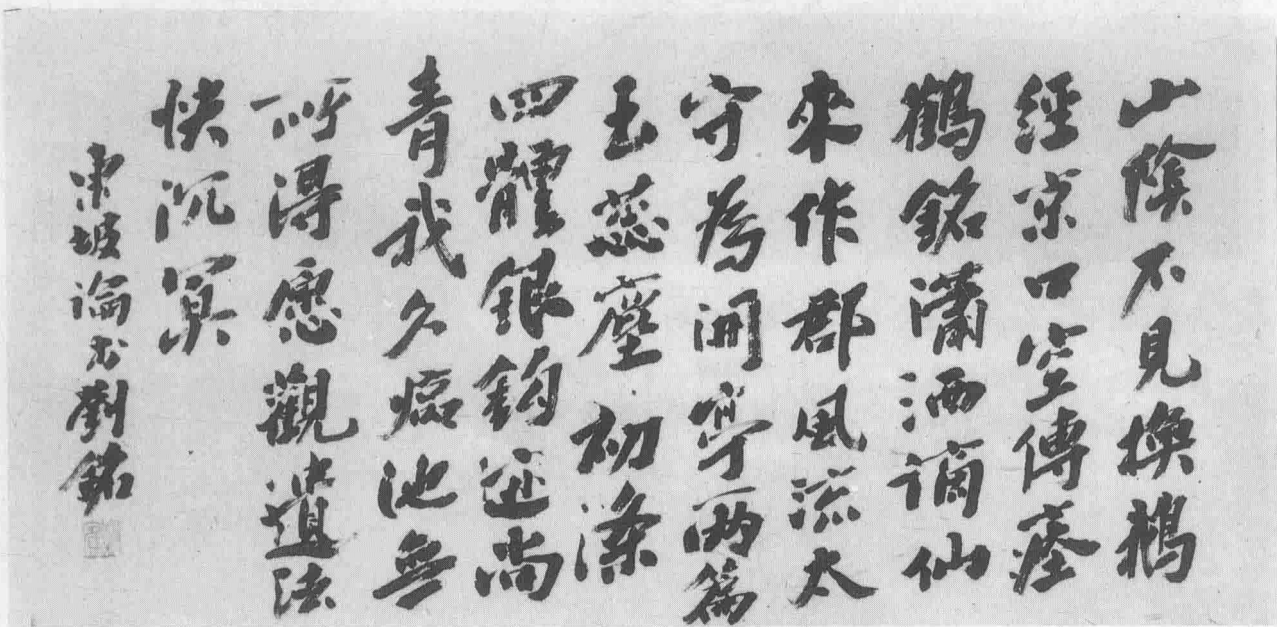 山陰不見換鵝
經京口空傳瘞
鶴銘瀟洒謫仙
來作郡風流太
守為開亭兩篇
玉蕊塵初滌
四體銀鈎迹尚
青我久臨池無
所得愿觀遺法
快沉冥
東坡論書劉銘